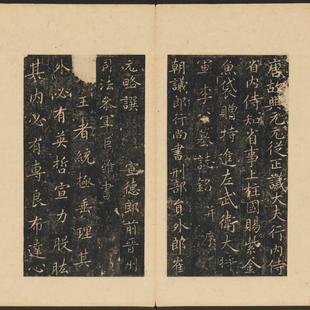 唐故興元元從正議大夫行內侍
省內侍知省事上柱國賜紫金
魚袋贈特進左武衛大將
軍李墓誌銘并序
朝議郎行尚書刑部員外郎崔
元略撰 宣德郎前晉州
司法參軍巨雅書
王者統極垂理其
外必有英哲宣力股肱
其內必有專良布達心